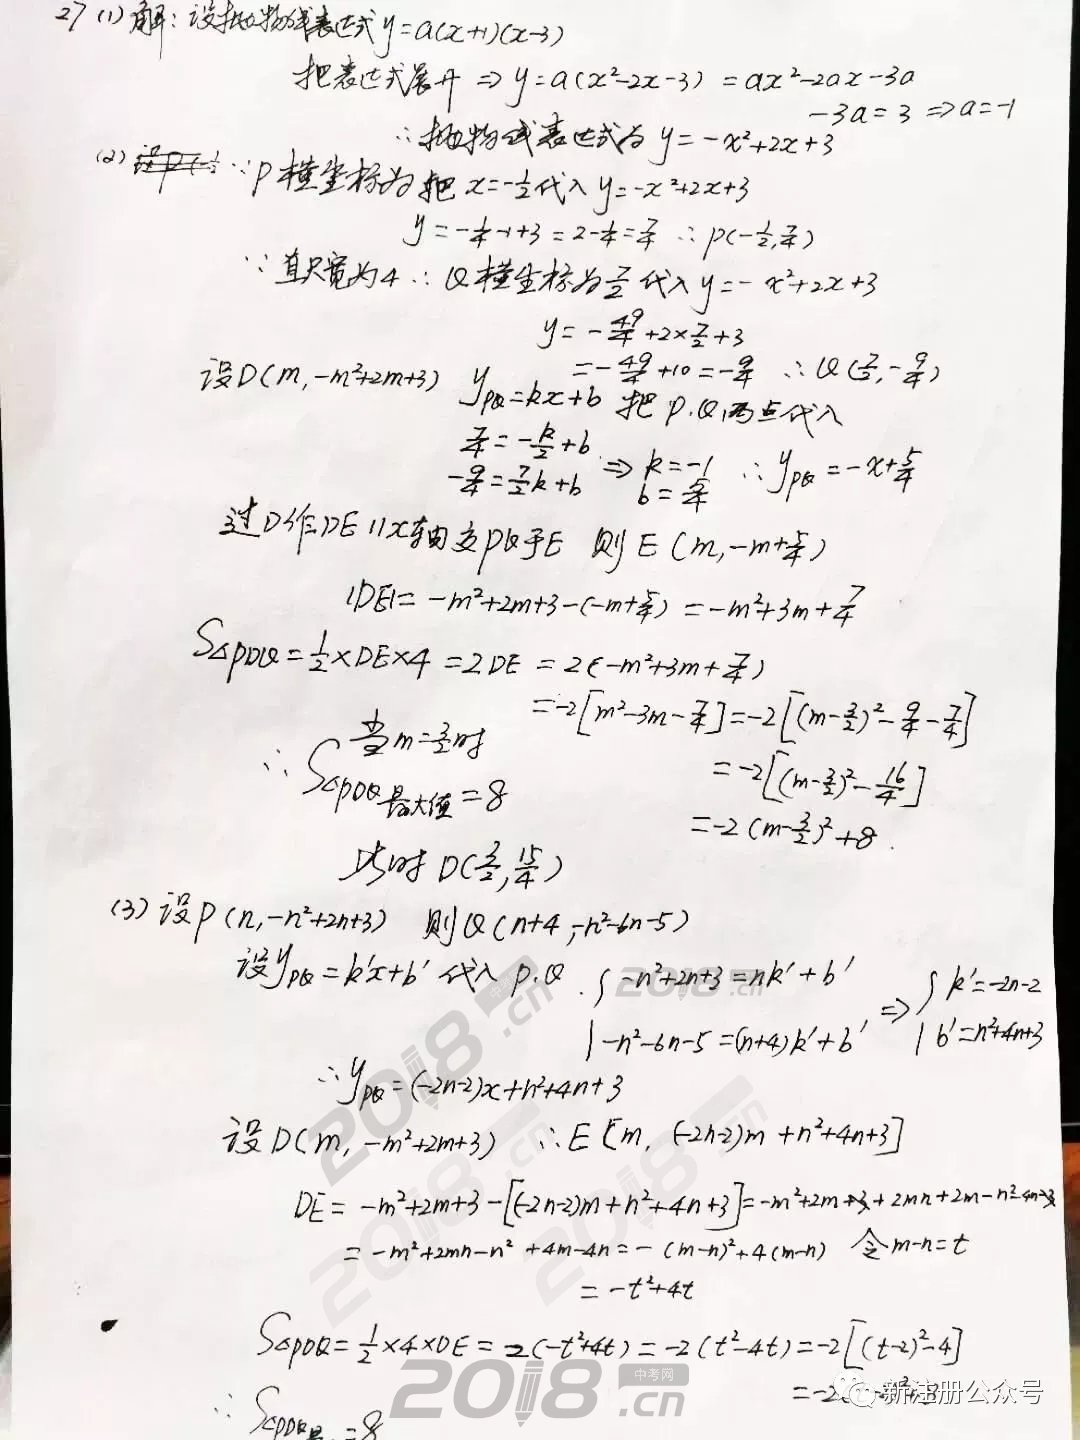 27 (1) 解: 设抛物线表达式 y=a(x+1)(x-3)
把表达式展开 ⇒ y=a(x²-2x-3) = ax²-2ax-3a
-3a=3 ⇒ a=-1
∴ 抛物线表达式为 y=-x²+2x+3
(2) ∵ P 横坐标为 把 x=-1/2 代入 y=-x²+2x+3
y=-1/4-1+3=2-1/4=7/4 ∴ P(-1/2,7/4)
∵ 直尺宽为4 ∴ Q 横坐标为 7/2 代入 y=-x²+2x+3
y=-49/4+2×7/2+3
=-49/4+10=-9/4 ∴ Q(7/2,-9/4)
设D(m,-m²+2m+3) yPQ=kx+b 把 P.Q 两点代入
7/4=-k/2+b
-9/4=7/2k+b ⇒ k=-1 b=5/4 ∴ yPQ=-x+5/4
过D作DE//x轴交PQ于E 则E(m,-m+5/4)
|DE|=-m²+2m+3-(-m+5/4)=-m²+3m+7/4
S△PDQ=1/2×DE×4=2DE=2(-m²+3m+7/4)
=-2[m²-3m-7/4]=-2[(m-3/2)²-9/4-7/4]
=-2[(m-3/2)²-16/4]
=-2(m-3/2)²+8.
当m=3/2时
∴ S△PDQ最大值=8
此时D(3/2,15/4)
(3) 设P(n,-n²+2n+3) 则Q(n+4,-n²-6n-5)
设yPQ=k'x+b' 代入 P.Q. { -n²+2n+3=nk'+b'
-n²-6n-5=(n+4)k'+b' ⇒ { k'=-2n-2
b'=n²+4n+3
∴ yPQ=(-2n-2)x+n²+4n+3
设D(m,-m²+2m+3) ∴ E[m,(-2n-2)m+n²+4n+3]
DE=-m²+2m+3-[(-2n-2)m+n²+4n+3]=-m²+2m+3+2mn+2m-n²-4n-3
=-m²+2mn-n²+4m-4n=-(m-n)²+4(m-n) 令m-n=t
=-t²+4t
S△PDQ=1/2×4×DE=2(-t²+4t)=-2(t²-4t)=-2[(t-2)²-4]
∴ S△PDQ最=8
2018.cn
中考网
新注册公众号